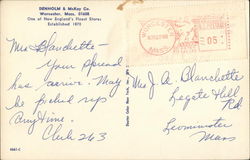 DENHOLM & McKay Co.
Worcester, Mass. 01608
One of New England's Finest Stores
Established 1870
Mrs Blanchette -
Your spread
has arrive. May
be picked up
Anytime.
Club 263
Mrs J. A. Blanchette
Legate Hill
Rd
Leominster
Mass